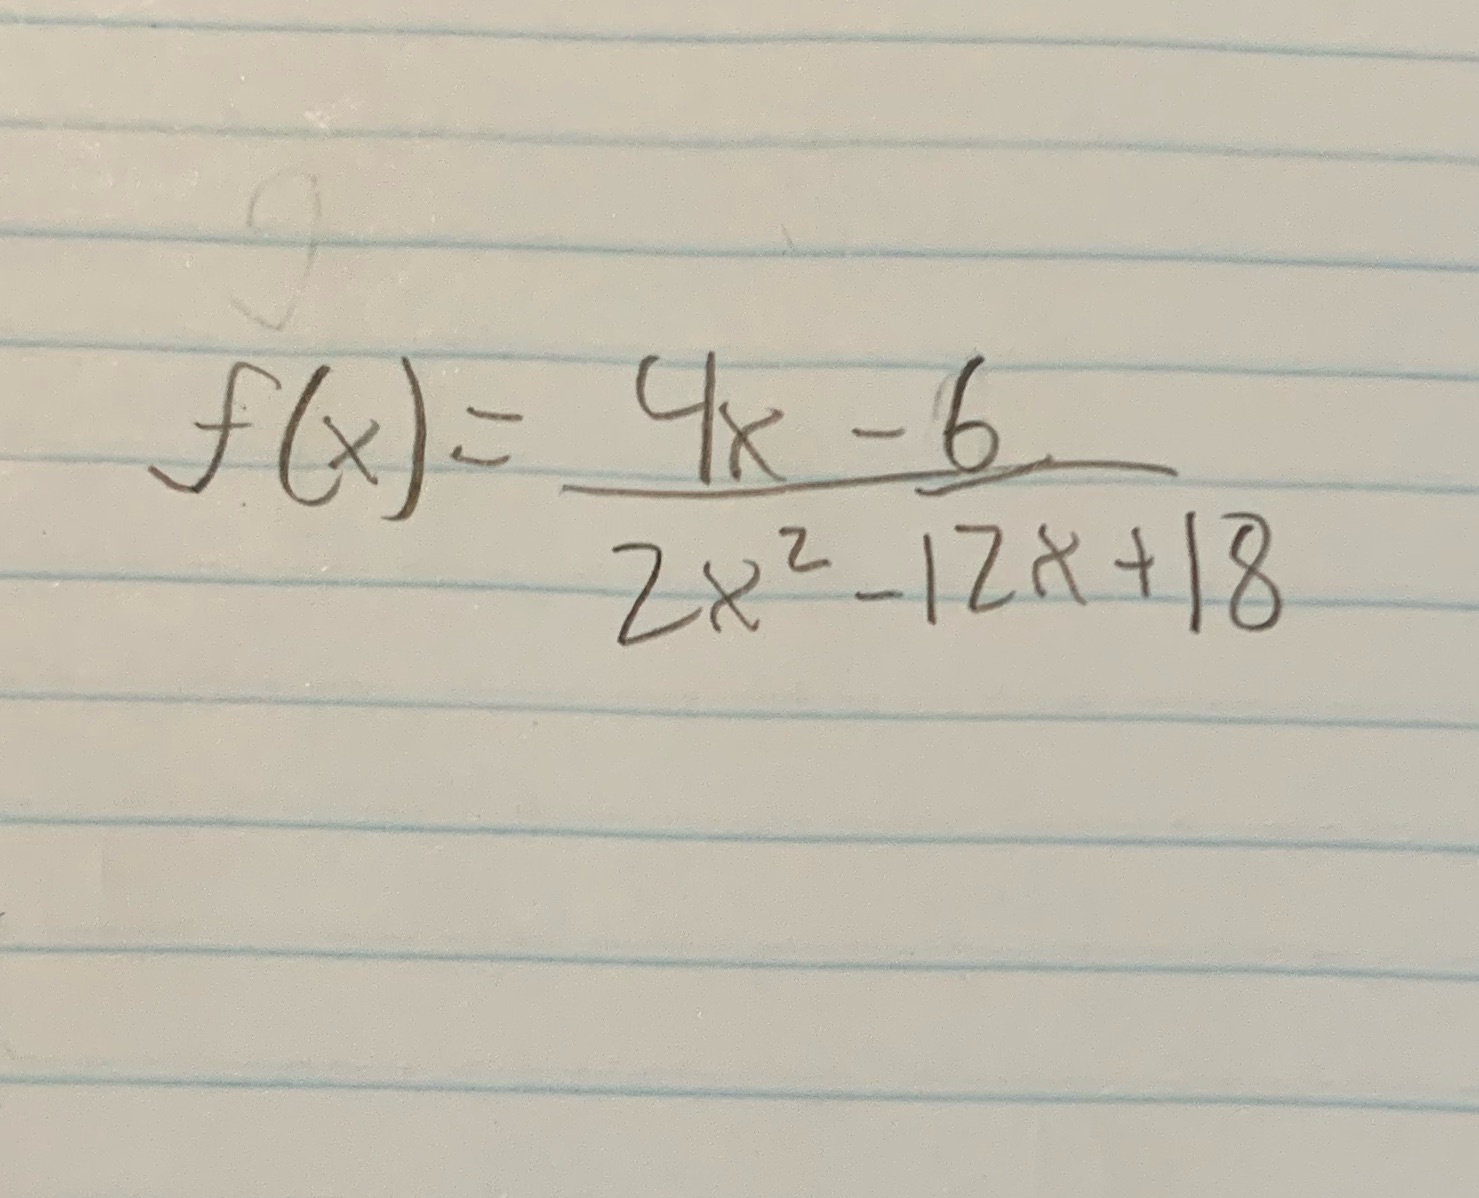 f(x) = 4x - 6
2x² - 12x + 18